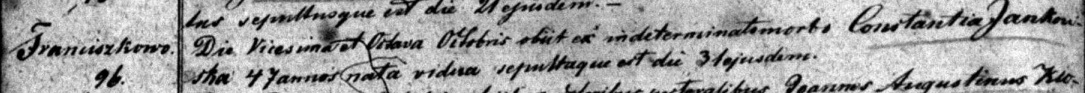 tus sepultusque est die 21 ejusdem.—
Franciszkowo. Die Vicesima et Octava Octobris obiit ex indeterminato morbo Constantia Jankow-
96. ska 47 annos nata vidua sepultaque est die 31 ejusdem.
Joannes Augustinus